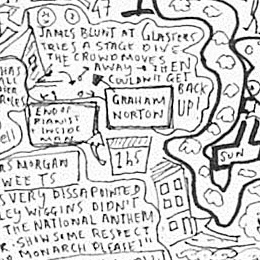 '47
JAMES BLUNT AT GLASTERS
TRIES A STAGE DIVE
THE CROWD MOVES
AWAY & THEN
COULDN'T GET
BACK
UP!
HAS
ALL
GRAHAM
NORTON
END OF
PIANIST
INSIDE
MAN
145
SUN
AS MORGAN
WEETS
VERY DISSAPOINTED
LEY WIGGINS DIDN'T
THE NATIONAL ANTHEM
R. SHOW SOME RESPECT
R MONARCH PLEASE!"